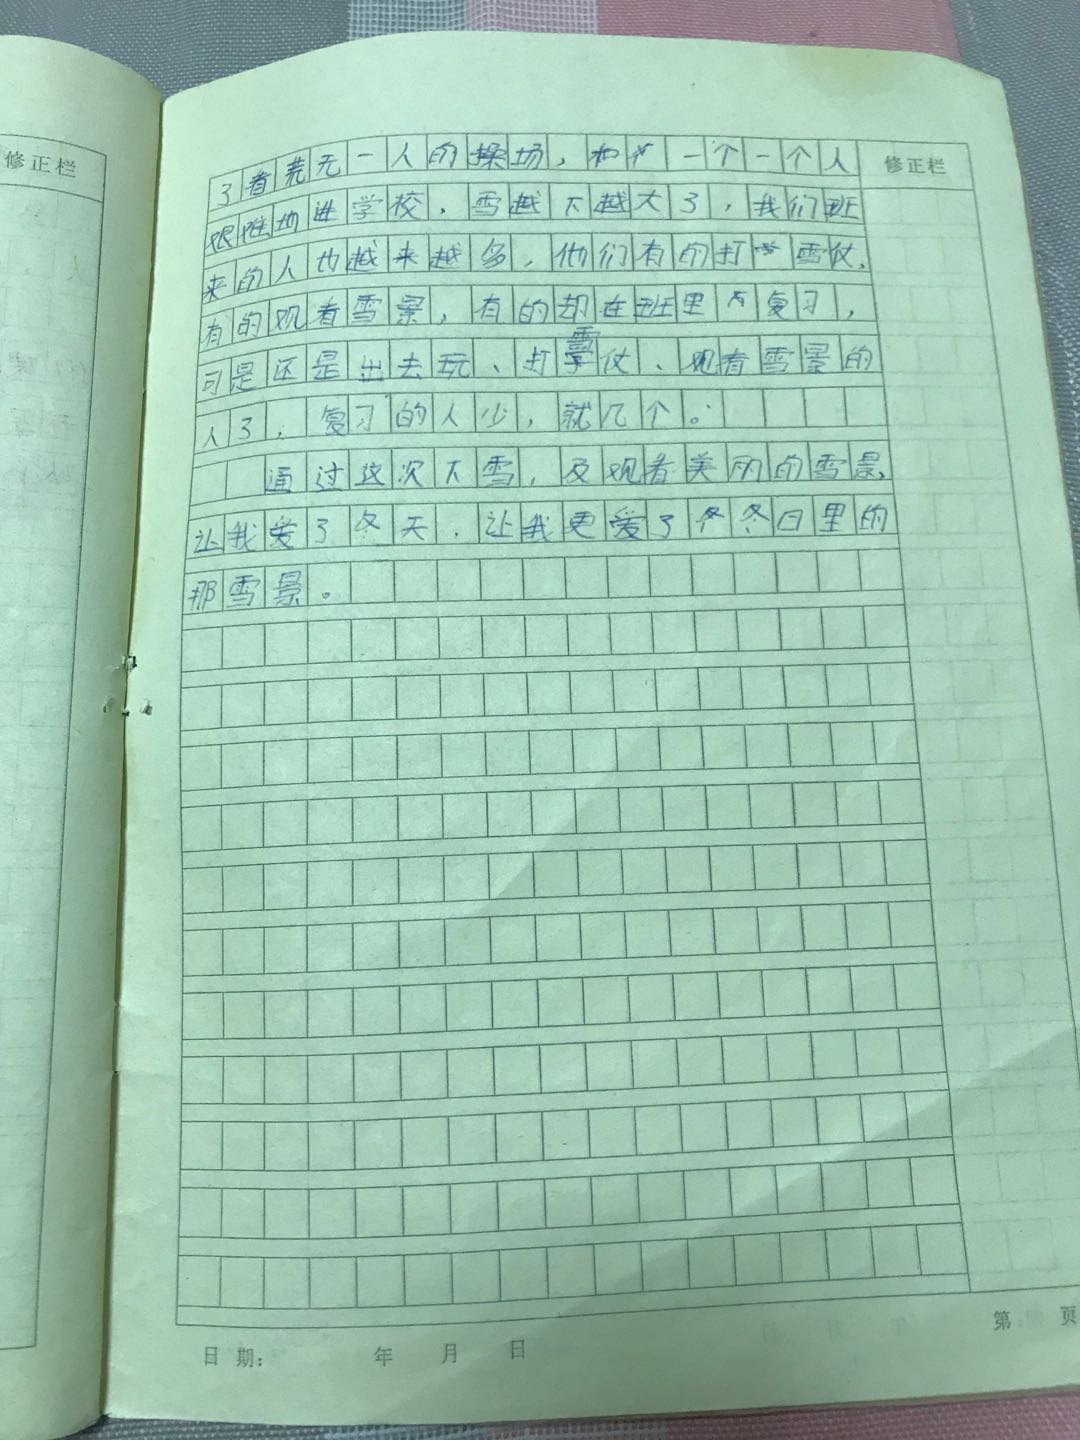 修正栏
修正栏
了看荒无一人的操场，和 一个一个人
艰难地进学校，雪越下越大了，我们班
来的人也越来越多，他们有的打雪仗，
有的观看雪景，有的却在班里复习，
可是还是出去玩、打雪仗、观看雪景的
人了，复习的人少，就几个。
通过这次下雪，及观看美丽的雪景，
让我爱了冬天，让我更爱了冬冬日里的
那雪景。
日期： 年 月 日
第 页